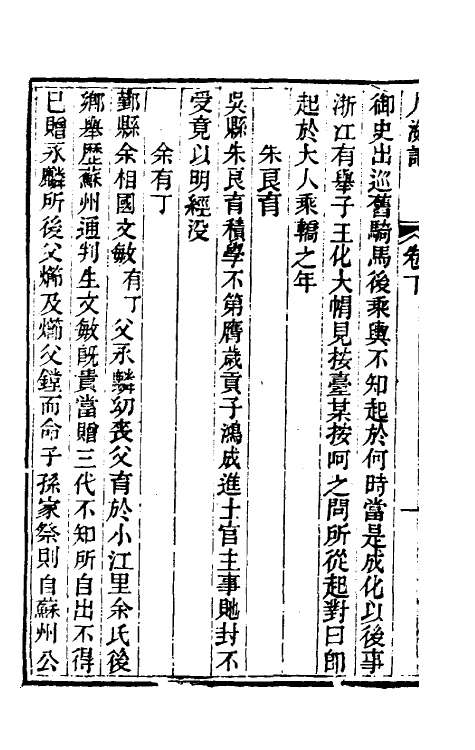 卷下
御史出巡舊騎馬後乘輿不知起於何時當是成化以後事
浙江有舉子王化大帽見按臺某按呵之問所從起對曰卽
起於大人乘轎之年
朱良育
吳縣朱良育積學不第膺歲貢子鴻成進士官主事貤封不
受竟以明經没
余有丁
鄞縣余相國文敏有丁父永麟幼喪父育於小江里余氏後
鄉舉歷蘇州通判生文敏旣貴當贈三代不知所自出不得
已贈永麟所後父爤及爤父鏜而命子孫家祭則自蘇州公